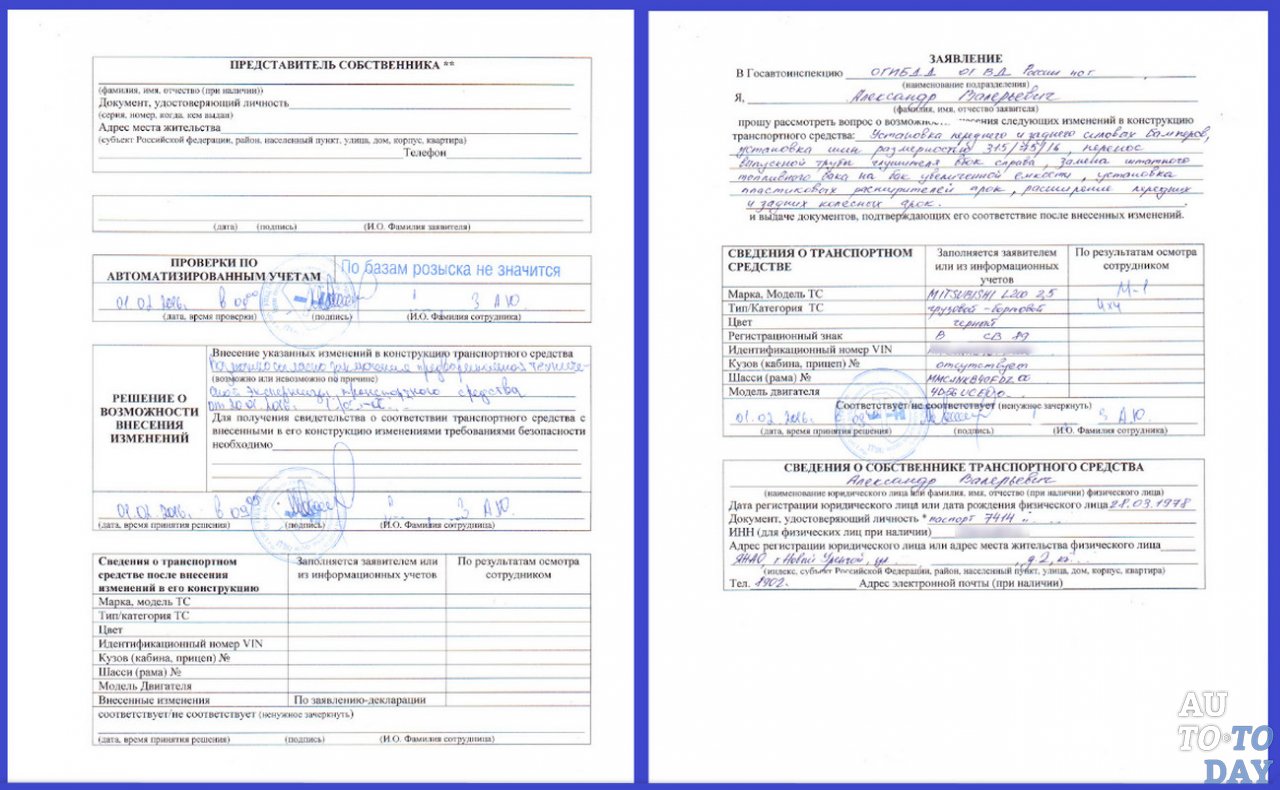 ПРЕДСТАВИТЕЛЬ СОБСТВЕННИКА **
(фамилия, имя, отчество (при наличии))
Документ, удостоверяющий личность
(серия, номер, когда, кем выдан)
Адрес места жительства
(субъект Российской федерации, район, населенный пункт, улица, дом, корпус, квартира)
Телефон
(дата) (подпись) (И.О. Фамилия заявителя)
ПРОВЕРКИ ПО АВТОМАТИЗИРОВАННЫМ УЧЕТАМ
По базам розыска не значится
01.02.2016г. в 09⁰⁰ З А.Ю
(дата, время проверки) (подпись) (И.О. Фамилия сотрудника)
РЕШЕНИЕ О
ВОЗМОЖНОСТИ
ВНЕСЕНИЯ
ИЗМЕНЕНИЙ
Внесение указанных изменений в конструкцию транспортного средства
Возможно согласно заключения предварительной техниче-
(возможно или невозможно по причине)
ской экспертизы транспортного средства
от 20.01.2016г.
Для получения свидетельства о соответствии транспортного средства с
внесенными в его конструкцию изменениями требованиями безопасности
необходимо
01.02.2016г. в 09⁰⁰ З А.Ю
(дата, время принятия решения) (подпись) (И.О. Фамилия сотрудника)
Сведения о транспортном
средстве после внесения
изменений в его конструкцию
Заполняется заявителем или
из информационных учетов
По результатам осмотра
сотрудником
Марка, модель ТС
Тип/категория ТС
Цвет
Идентификационный номер VIN
Кузов (кабина, прицеп) №
Шасси (рама) №
Модель Двигателя
Внесенные изменения По заявлению-декларации
соответствует/не соответствует (ненужное зачеркнуть)
(дата, время принятия решения) (подпись) (И.О. Фамилия сотрудница)
ЗАЯВЛЕНИЕ
В Госавтоинспекцию ОГИБДД ОГ ВД России по г.
(наименование подразделения)
Я, Александр Валерьевич
(фамилия, имя, отчество заявителя)
прошу рассмотреть вопрос о возможнос... несения следующих изменений в конструкцию
транспортного средства: Установка переднего и заднего силовых бамперов,
установка шин размерностью 315/75/16, перенос
выпускной трубы глушителя вбок справа, замена штатного
топливного бака на бак увеличенной емкости, установка
пластиковых расширителей арок, расширение передних
и задних колесных арок.
и выдаче документов, подтверждающих его соответствие после внесенных изменений.
СВЕДЕНИЯ О ТРАНСПОРТНОМ
СРЕДСТВЕ
Заполняется заявителем
или из информационных
учетов
По результатам осмотра
сотрудником
Марка, Модель ТС MITSUBISHI L200 2,5 М-1
Тип/Категория ТС грузовой-бортовой 4х4
Цвет черный
Регистрационный знак В СВ 89
Идентификационный номер VIN
Кузов (кабина, прицеп) № отсутствует
Шасси (рама) №
Модель двигателя
Соответствует/не соответствует (ненужное зачеркнуть)
01.02.2016г. З А.Ю
(дата, время принятия решения) (подпись) (И.О. Фамилия сотрудника)
СВЕДЕНИЯ О СОБСТВЕННИКЕ ТРАНСПОРТНОГО СРЕДСТВА
Александр Валерьевич
(наименование юридического лица или фамилия, имя, отчество (при наличии) физического лица)
Дата регистрации юридического лица или дата рождения физического лица 28.09.1978
Документ, удостоверяющий личность * паспорт 7414
ИНН (для физических лиц при наличии)
Адрес регистрации юридического лица или адрес места жительства физического лица
ЯНАО, г. Новый Уренгой, ул. , д 2, кв.
(индекс, субъект Российской Федерации, район, населенный пункт, улица, дом, корпус, квартира)
Тел. 8902 Адрес электронной почты (при наличии)
AU
TO TO
DAY